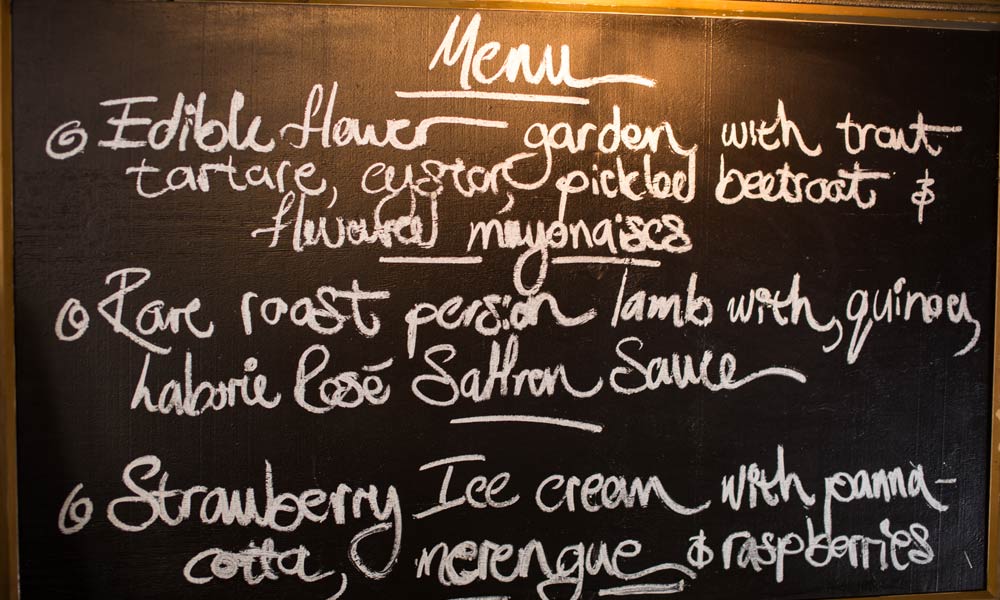 Menu
Edible flower garden with trout
tartare, oyster, pickled beetroot &
flavared mayonaises
Rare roast persian lamb with, quinoa,
Laborie Rosé Saffron Sauce
Strawberry Ice cream with panna-
cotta, merengue & raspberries